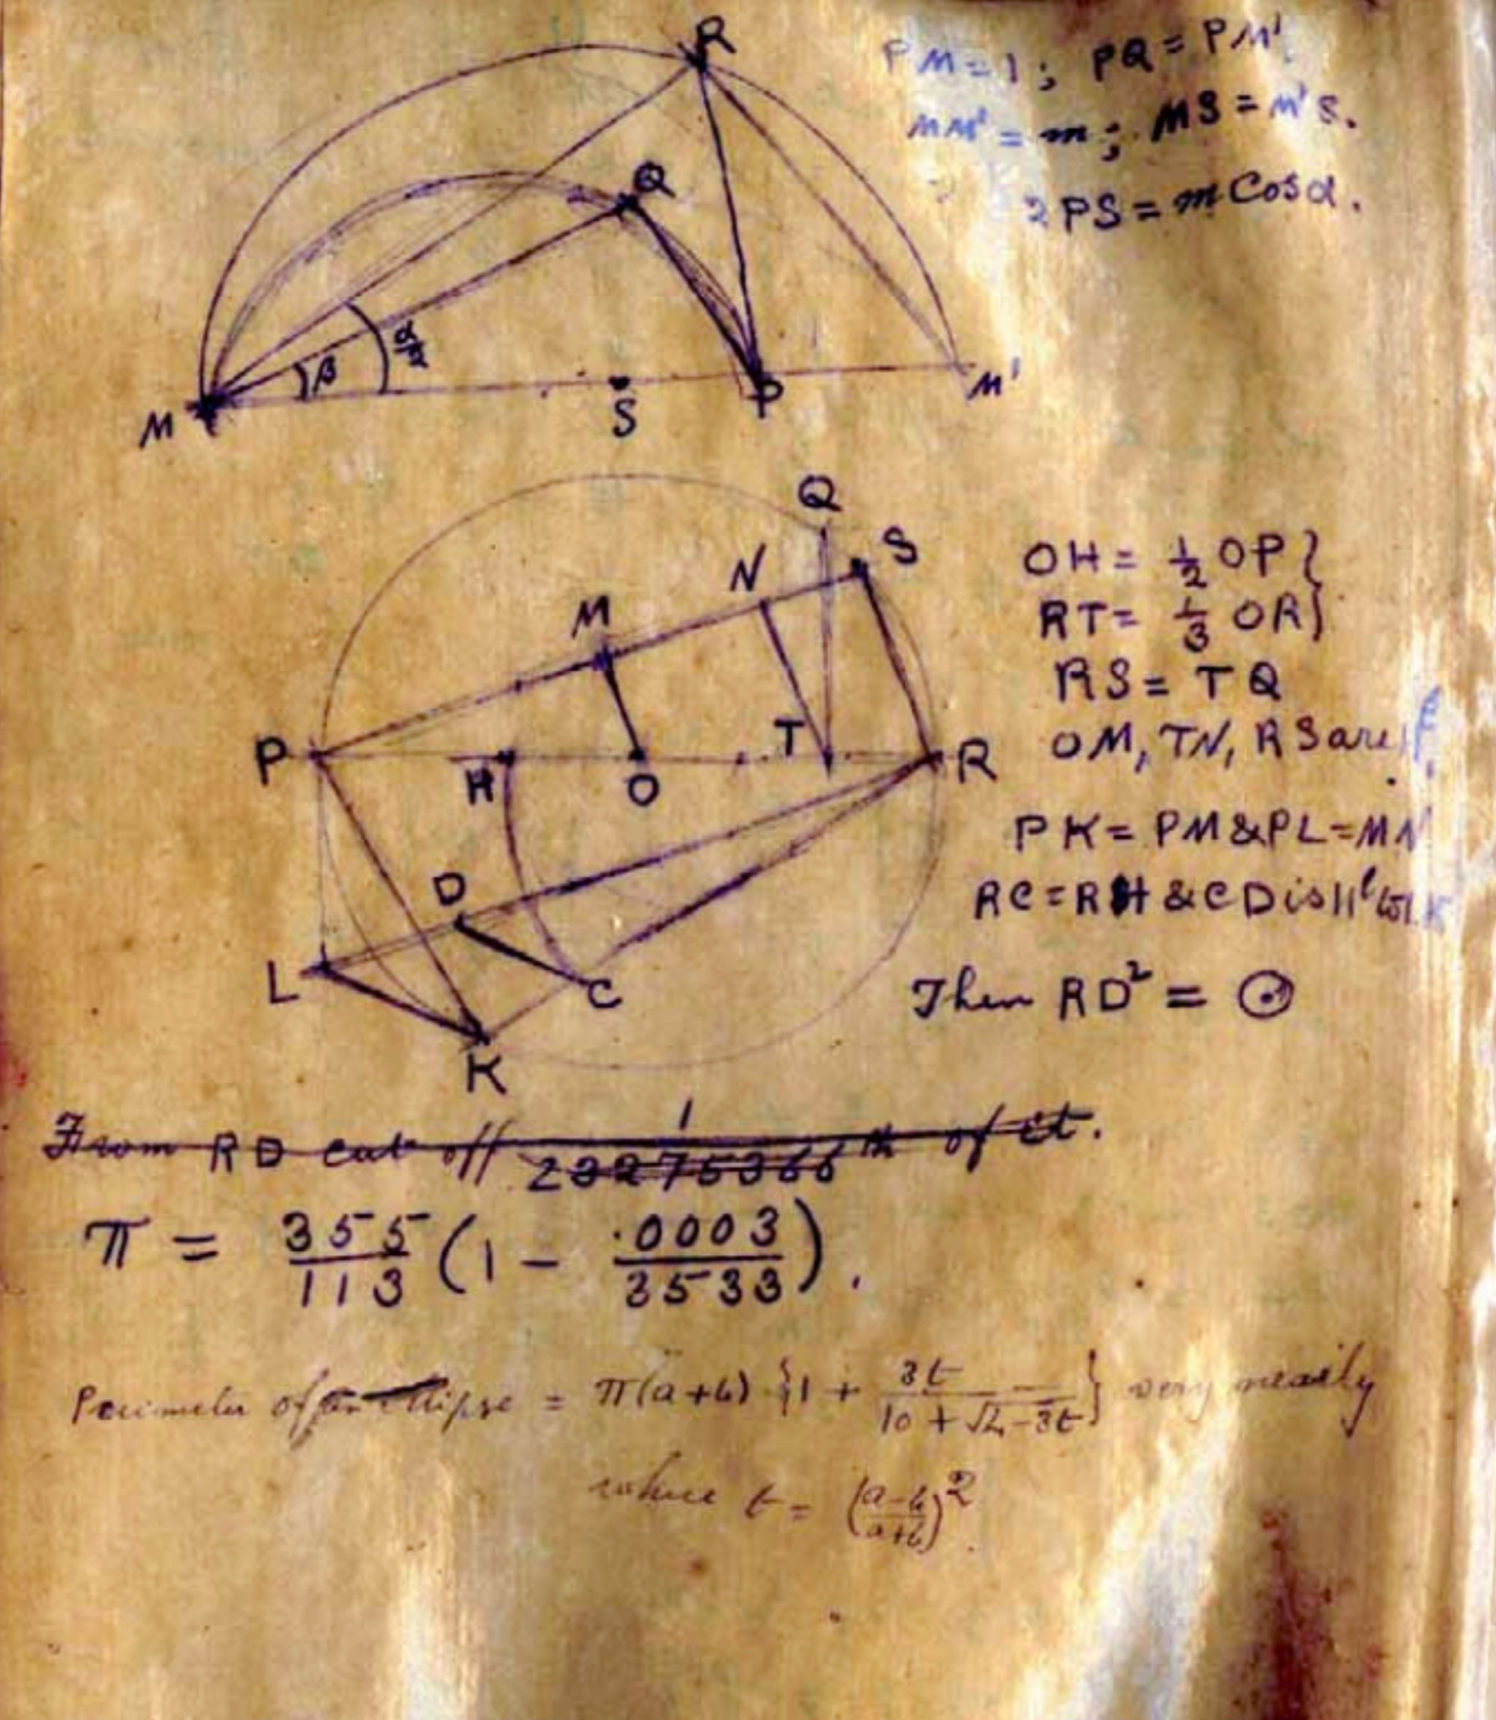 R
PM = 1 ; PQ = PM'
MM' = m ; MS = M'S.
2PS = m Cos α.
Q
β
α/2
M
S
P
M'
Q
N
S
M
P
H
O
T
R
D
L
C
K
OH = 1/2 OP }
RT = 1/3 OR }
RS = TQ
OM, TN, RS are
PK = PM & PL = MN
RC = RH & CD is ||l
Then RD² = ⊙
From RD cut off 1/23275366 th of it.
π = 355/113 (1 - .0003/3533).
Perimeter of an ellipse = π(a+b) {1 + 3t/(10 + √4-3t)} very nearly
where t = (a-b/a+b)².